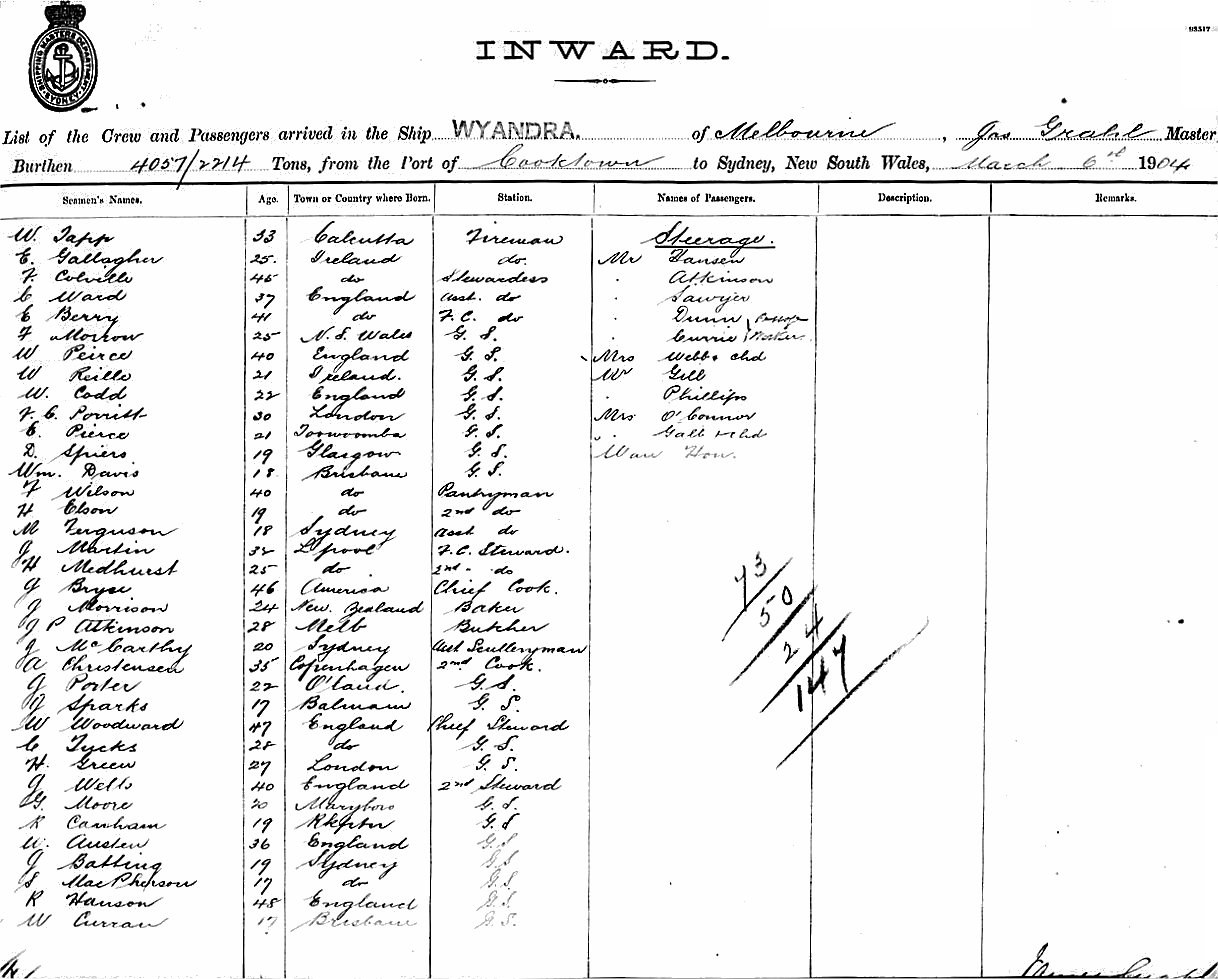 SHIPPING MASTERS DEPARTMENT SYDNEY
93517
INWARD.
List of the Crew and Passengers arrived in the Ship WYANDRA. of Melbourne, Jas Grahl Master
Burthen 4057/2214 Tons, from the Port of Cooktown to Sydney, New South Wales, March 6 1904
Seamen's Names. Age. Town or Country where Born. Station. Names of Passengers. Description. Remarks.
W. Tapp 33 Calcutta Fireman Steerage.
E. Gallagher 25 Ireland do. Mr Hansen
F Colville 45 do Stewardess . Atkinson
C Ward 37 England asst. do . Sawyer
E Berry 41 do F.C. do . Dunn
F Morrow 25 N.S. Wales G. S. . Currie
W Peirce 40 England G. S. Mrs Webb & chd
W Reille 21 Ireland. G. S. Mr Gill
W. Codd 22 England G. S. . Phillips
F. C. Porritt 30 London G. S. Mrs O'Connor
E. Pierce 21 Toowoomba G. S. " Galb & chd
D. Spiers 19 Glasgow G. S. Wau Hon.
Wm. Davis 18 Brisbane G. S.
F Wilson 40 do Pantryman
H Elson 19 do 2nd do
M Ferguson 18 Sydney asst do
J Martin 32 L'pool F.C. Steward.
H Medhurst 25 do 2nd do
J Bryse 46 America Chief Cook.
J Morrison 24 New. Zealand Baker
J P Atkinson 28 Melb Butcher
J McCarthy 20 Sydney Asst Sculleryman
A Christensen 35 Copenhagen 2nd Cook.
J Porter 22 Q'land. G. S.
J Sparks 17 Balmain G. S.
W Woodward 47 England Chief Steward
C Tycks 28 do G. S.
H. Green 27 London G. S.
J Wells 40 England 2nd Steward
G. Moore 20 Maryboro G. S.
R Canham 19 Rkptn G. S
W. Austen 36 England G. S
J Batting 19 Sydney G. S
S MacPherson 17 do G. S.
R Hanson 48 England G. S.
W Curran 17 Brisbane G. S.
73
50
24
147